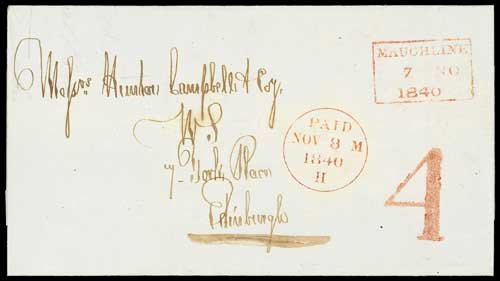 Messrs. Hunter Campbell & Coy.
W.S
7 York Place
Edinburgh
MAUCHLINE
7 NO
1840
PAID
NOV 8 M
1840
H
4